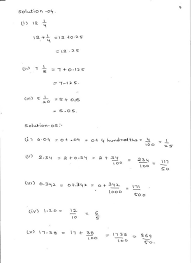 Solution-04
(i) 12 1/4
12 + 1/4 = 12 + 0.25
= 12.25
(ii) 7 1/8 = 7 + 0.125
= 7.125
(iii) 5 1/20 = 5 + 0.05
= 5.05
Solution-05:-
(i) 0.04 = 0 + .04 = 0 + 4 hundredths = 4/100 = 1/25
(ii) 2.34 = 2 + 0.34 = 2 + 34/100 = 234/100 = 117/50
(iii) 0.342 = 0 + .342 = 0 + 342/1000 = 171/500
(iv) 1.20 = 12/10 = 6/5
(v) 17.38 = 17 + 38/100 = 1738/100 = 869/50